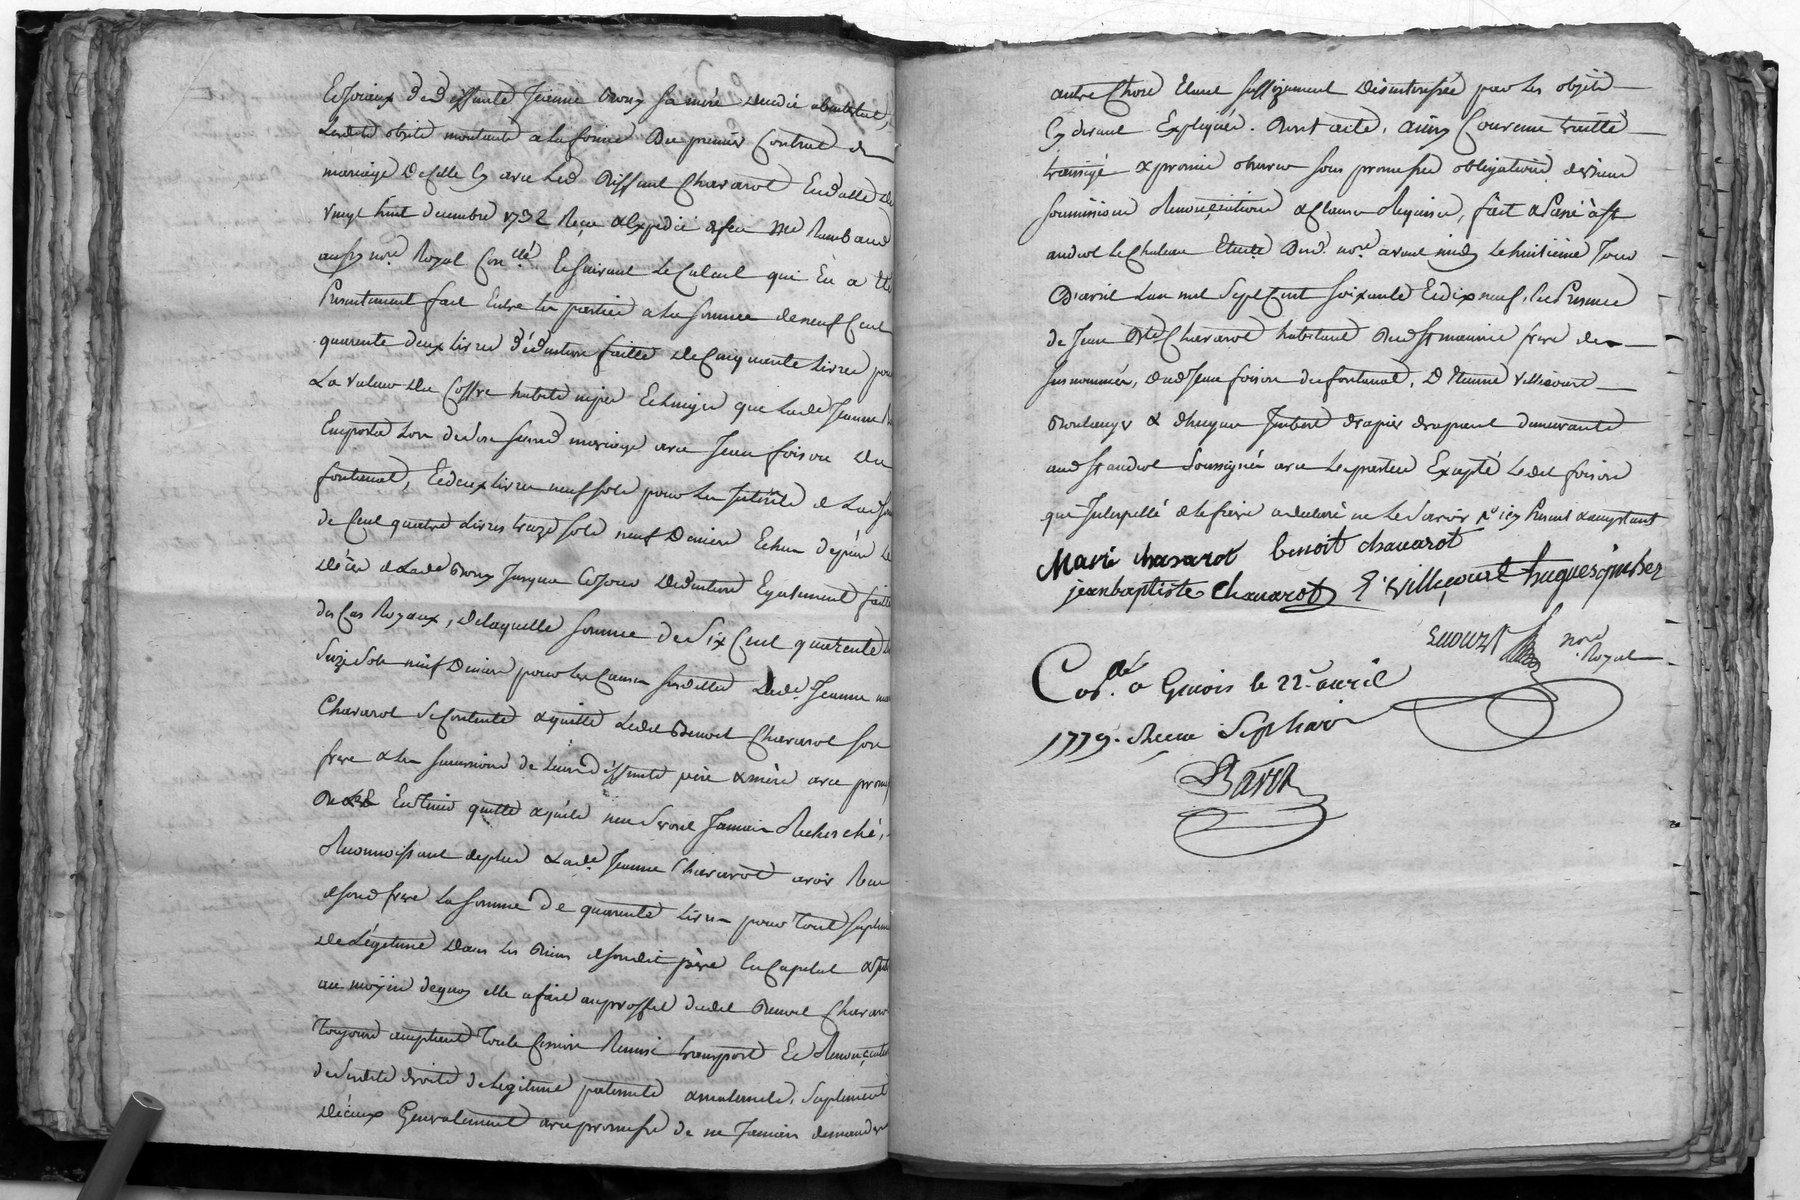 et joiaux de deffunte Jeanne Brony sa mere decedée abintestat,
lesdits objets montants a la forme du premier Contrat de
mariage de Celle Cy avec led deffunt Chavarot En datte du
vingt huit decembre 1732 Reçu & Expedié a feu Me Rimbaud
aussy nore Royal Et suivant le Calcul qui En a été
Presentement fait Entre les parties a la somme de neuf Cent
quarante deux livres deduction faitte de Cinquante livres pour
La valeur du Coffre habits nipes Et linges que lade Jeanne
Emporta lors de son second mariage avec Jean foison du
fontanat, Et deux livres neuf sols pour les Interets de lad
de Cent quatre livres treize sols neuf Deniers Echus depuis le
décès de lade Brony Jusques Ce Jour deduction Egalement faitte
des Cas Royaux, de laquelle somme de Six Cent quarante
Seize Sols neuf Deniers pour les Causes susdittes lade Jeanne
Chavarot se Contente & quitte ledit Benoit Chavarot son
frere & les successions de leurs deffunts père & mère avec promesse
Entiere quitte & qu'ils n'en seront Jamais Recherché,
Reconnoissant de plus lade Jeanne Chavarot avoir Reçu
de son frere la somme de quarante livres pour tout suplement
de Légitime dans les Biens de son dit père En Capital
au moyen de quoy elle a fait au proffit dudit Benoit Chavarot
toujours acceptant toute Cession Remise transport Et Renonciation
de sesdits droits de legitime paternels & maternels, suplement
d'iceux Generalement avec promesse de ne Jamais demander
autre Chose Etant suffizament desinteressée pour les objets
Cy devant Expliqués. Dont acte, ainsy Convenu traitté
transigé & promis observer sous promesses obligations de biens
soumissions Renonciations & Clauses Requises, fait & Passé à St
andeol le Chateau Etude dud. nore avant midy le huitieme Jour
D'avril l'an mil Sept Cent soixante Et dix neuf, En Presence
de Jean Bte Chavarot habitant Dud St maurice frere des
susnommés, dud Jean foison du fontanat, D'Etienne Villecourt
Boulanger & d'hugue Imbert drapier drapant demeurants
aud St andeol soussignés avec les parties Excepté ledit foison
qui Interpellé de le faire a declaré ne le savoir pr icy Present & acceptant
Marie chavarot benoit chavarot
jean baptiste chavarot E villecourt hugues jmber
nore Royal
Colé. a Givois le 22. avril
1779. Reçu Sept